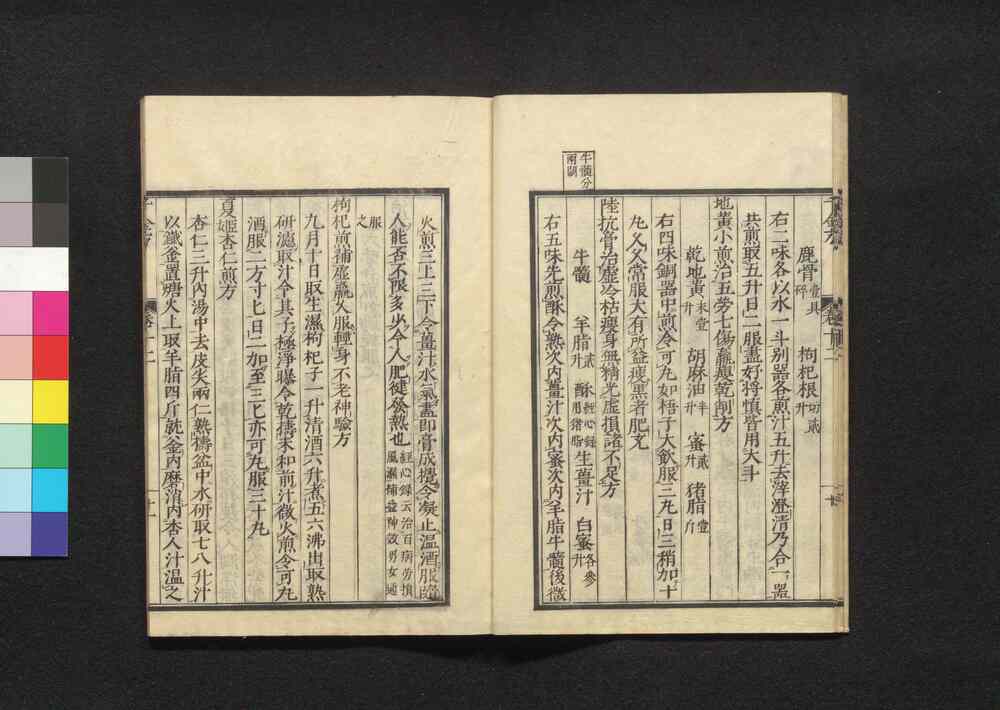 牛髓分
兩閒
鹿骨壹具碎 枸杞根切貳升
右二味各以水一斗別器各煎汁五升去滓澄清乃合一器
共煎取五升日二服盡好將愼皆用大斗
地黃小煎治五勞七傷羸瘦乾削方
乾地黃末壹升 胡麻油半升 蜜貳升 猪脂壹斤
右四味銅器中煎令可丸如梧子大飲服三丸日三稍加十
丸久久常服大有所益瘦黑者肥充
陸抗膏治虛冷枯瘦身無精光虛損諸不足方
牛髓 羊脂貳升 酥經心錄用猪脂 生薑汁 白蜜各參升
右五味先煎酥令熟次內薑汁次內蜜次內羊脂牛髓後微
千金方 卷十二
火煎三上三下令薑汁水氣盡即膏成攪令凝止溫酒服隨
人能否不限多少令人肥健發熱也經心錄云治百病勞損風濕補益神效男女通
服之
枸杞煎補虛羸久服輕身不老神驗方
九月十日取生濕枸杞子一升清酒六升煮五六沸出取熟
研濾取汁令其子極淨曝令乾擣末和前汁微火煎令可丸
酒服二方寸匕日二加至三匕亦可丸服三十丸
夏姬杏仁煎方
杏仁三升內湯中去皮尖兩仁熟擣盆中水研取七八升汁
以鐵釜置煻火上取羊脂四斤就釜內磨消內杏人汁溫之
千金方 卷十二 十一